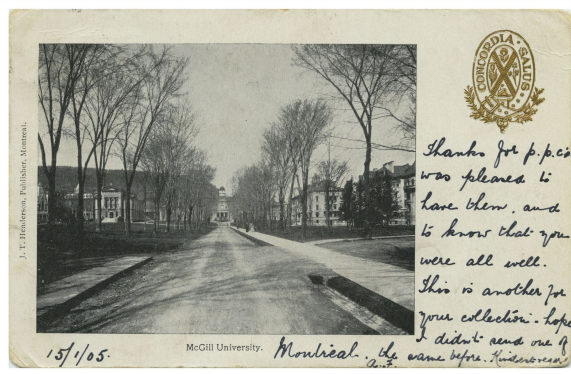 CONCORDIA SALUS
J. T. Henderson, Publisher, Montreal.
Thanks for p.p.c's
was pleased to
have them, and
to know that you
were all well.
This is another for
your collection. hope
I didn't send one of
the same before. Kindest regards
McGill University.
15/1/05.
Montreal.